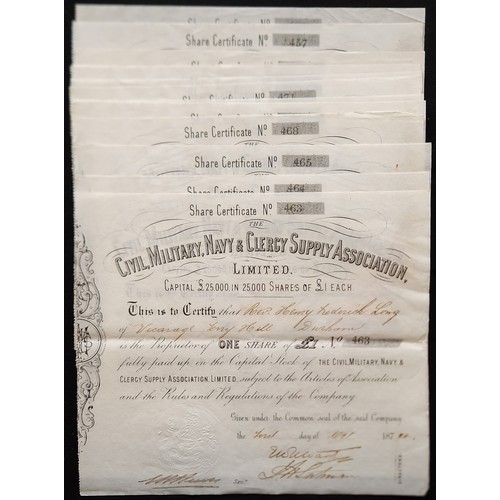 Share Certificate Nº
Share Certificate Nº 457
Share Certificate Nº 471
Share Certificate Nº 468
Share Certificate Nº 465
Share Certificate Nº 464
Share Certificate Nº 463
THE
CIVIL, MILITARY, NAVY & CLERGY SUPPLY ASSOCIATION,
LIMITED.
CAPITAL £25,000, IN 25000 SHARES OF £1 EACH
This is to Certify that Revd Henry Frederick Long
of Vicarage Hill Durham
is the Proprietor of ONE SHARE of £1 Nº 463
fully paid up in the Capital Stock of THE CIVIL, MILITARY, NAVY &
CLERGY SUPPLY ASSOCIATION, LIMITED, subject to the Articles of Association
and the Rules and Regulations of the Company
Given under the Common seal of the said Company
the first day of 187
DIRECTORS
Secy